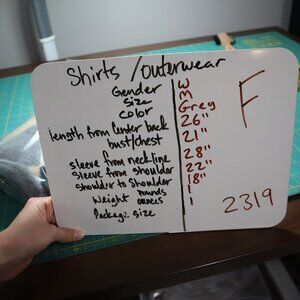 Shirts / outerwear
Gender W
size M
color Grey
length from center back 26"
bust/chest 21"
sleeve from neckline 28"
sleeve from shoulder 22"
shoulder to shoulder 18"
Weight pounds 1
ounces 1
Package size 1
F
2319